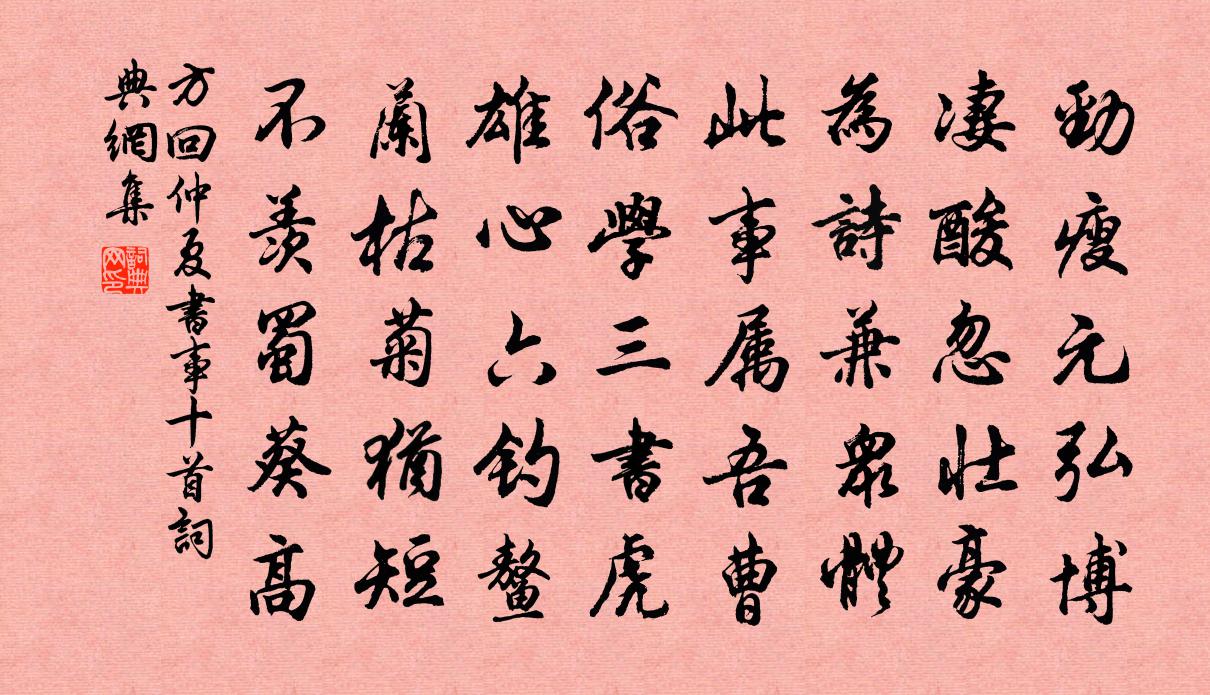 勁瘦元弘博
凄酸忽壮豪
為詩兼眾體
此事属吾曹
俗學三書虎
雄心六釣鼇
蘭枯菊猶短
不羨蜀葵高
方回仲夏書事十首詞
典網集
詞典網印